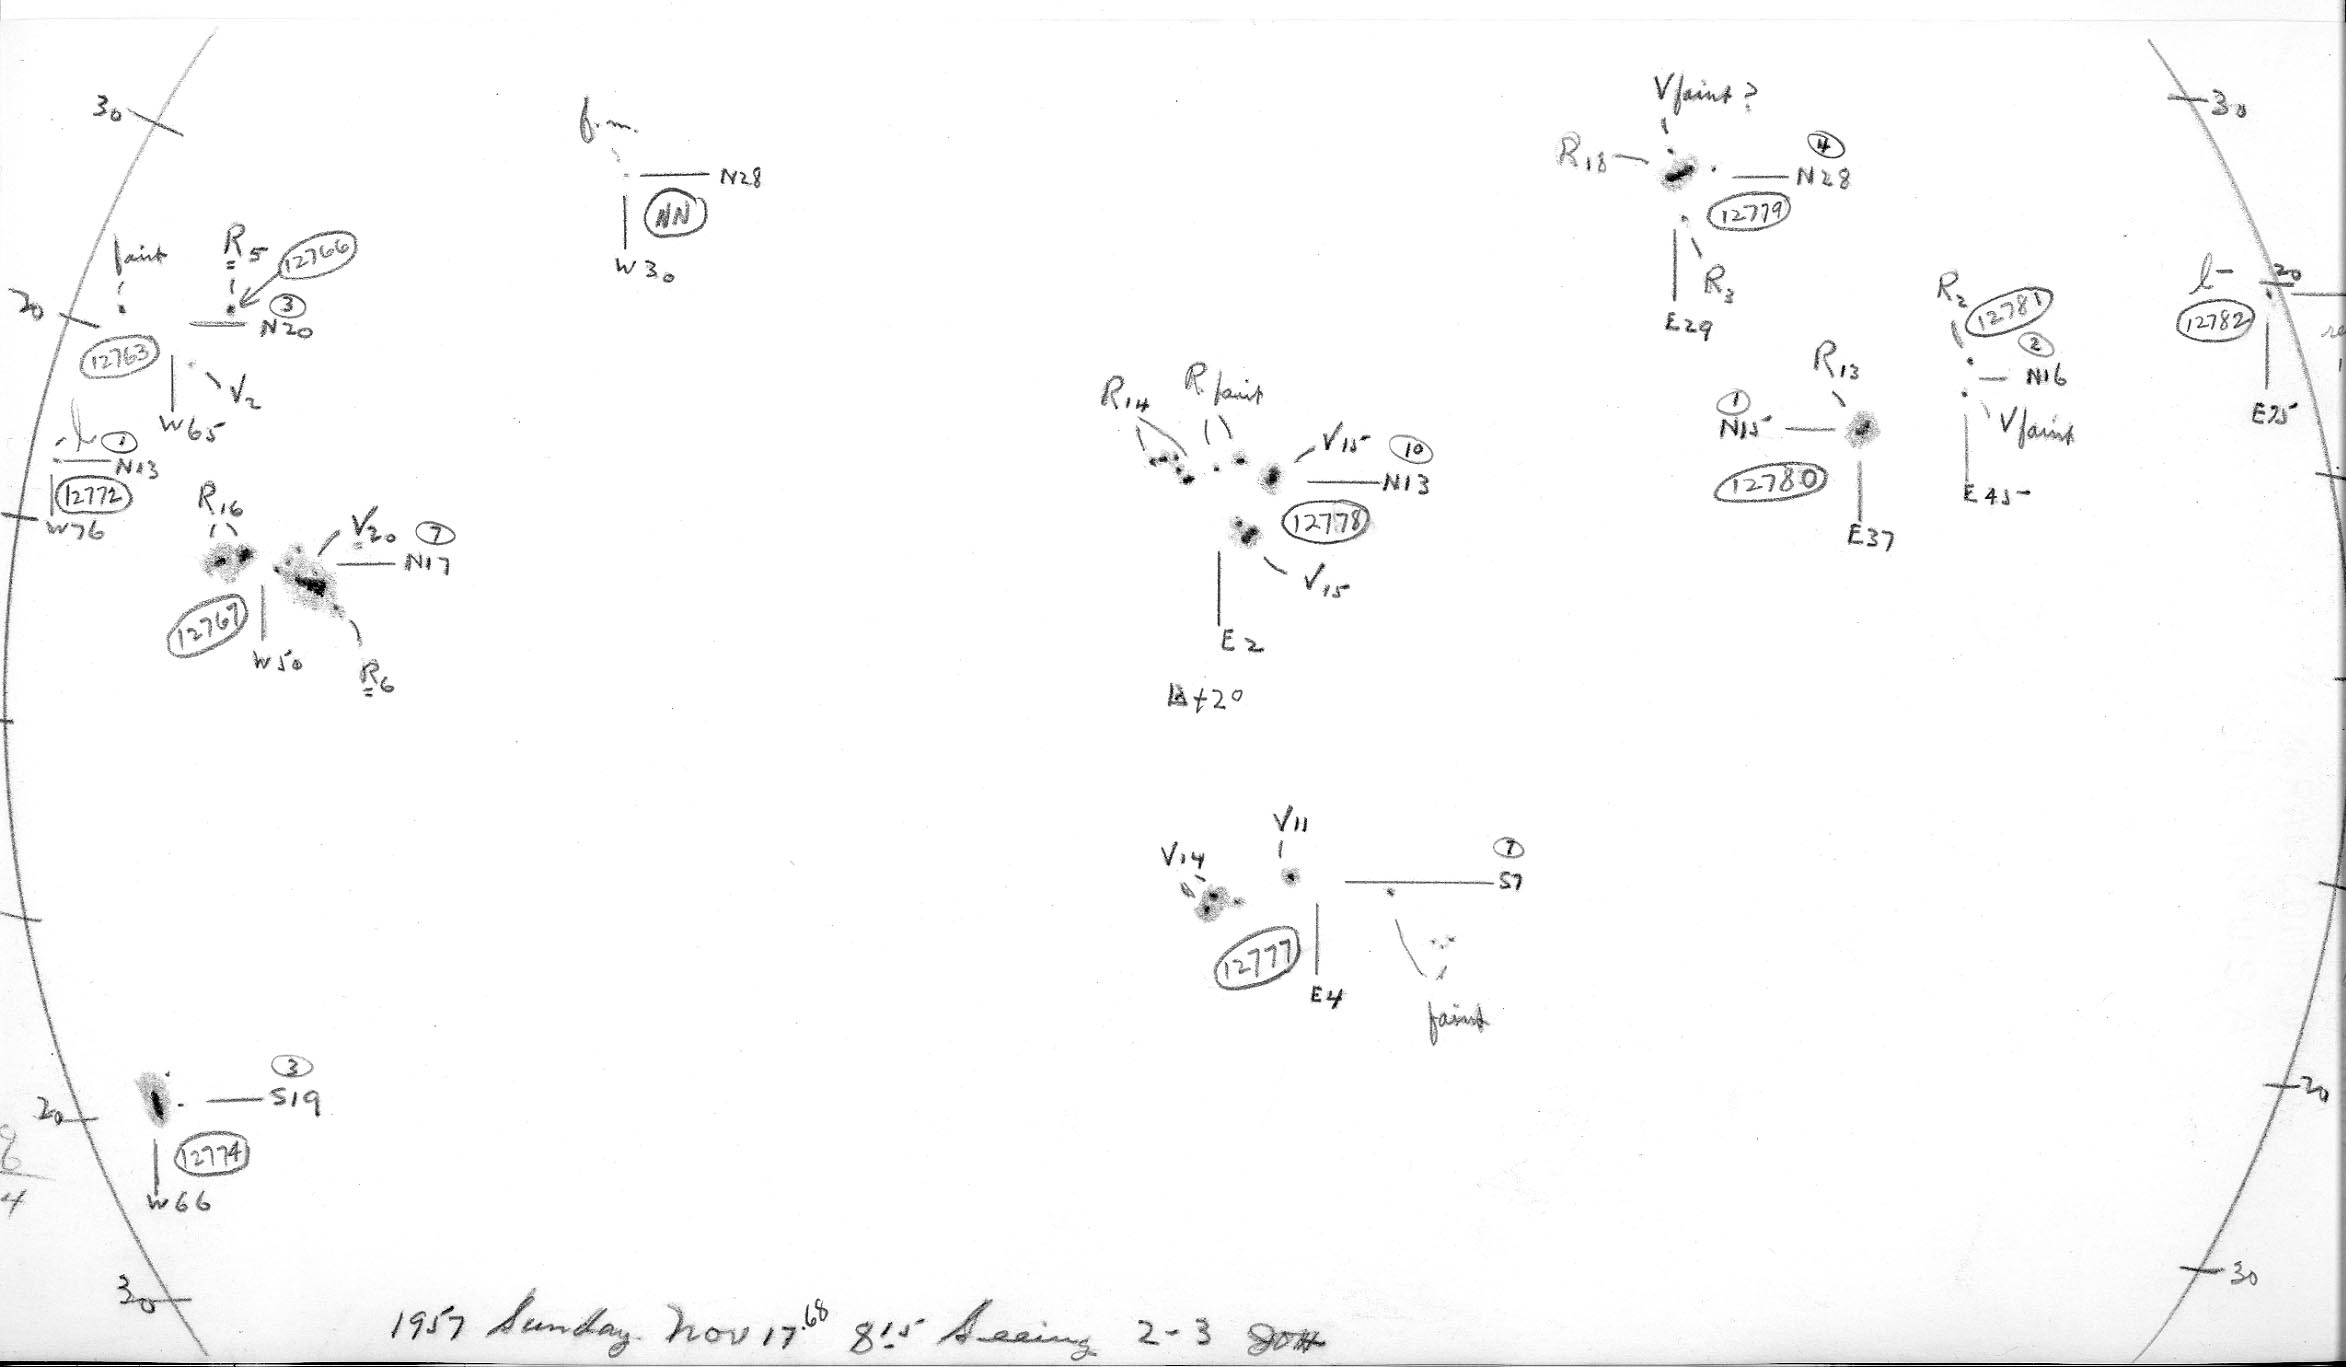 30
f.m.
N28
NN
W30
V faint ?
R18
4
N28
12779
R3
E29
30
faint
R5
12766
20
3
N20
12763
V2
W65
l
1
N13
12772
W76
R16
V20
7
N17
12767
W50
R6
R14
R faint
V15
10
N13
12778
V15
E2
B+2°
R2
12781
2
N16
V faint
E45
R13
1
N15
12780
E37
l
20
12782
E75
V11
V14
7
S7
12777
E4
faint
3
S19
20
12774
W66
8
4
20
30
30
1957 Sunday Nov 17.68 8:15 Seeing 2-3